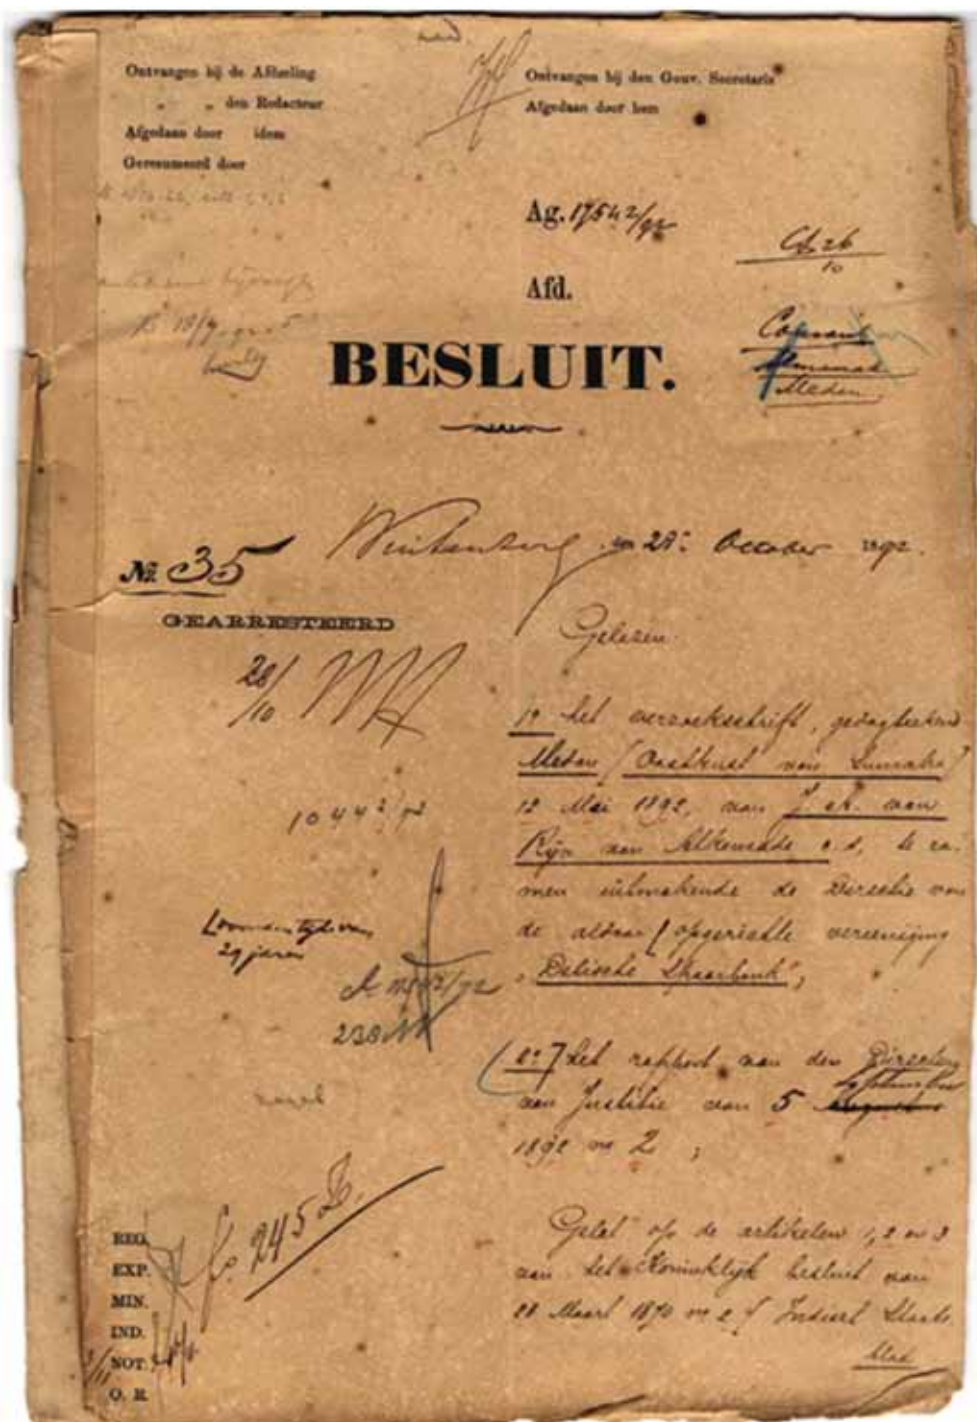 Ontvangen bij de Afdeeling
„ „ den Redacteur
Afgedaan door idem
Geresumeerd door
Ontvangen bij den Gouv. Secretaris
Afgedaan door hem
Ag. 17542/92
26
10
Afd.
Courant
Almanak
Medan
BESLUIT.
No 35
Buitenzorg, den 28n October 1892.
GEARRESTEERD
28/10
Gelezen:
1o het verzoekschrift, gedagteekend
Medan (Oostkust van Sumatra)
12 Mei 1892, van J. A. van
Rijn van Alkemade c.s., te za-
men uitmakende de Directie van
de aldaar opgerichte vereeniging
„Delische Spaarbank";
1044 2/92
29 jaren
2o het rapport van den Directeur
van Justitie van 5 Augustus September
1892 no 2;
245
Gelet op de artikelen 1, 2 en 3
van het Koninklijk besluit van
28 Maart 1870 no 2 (Indisch Staats-
blad
REG.
EXP.
MIN.
IND.
NOT.
O. R.